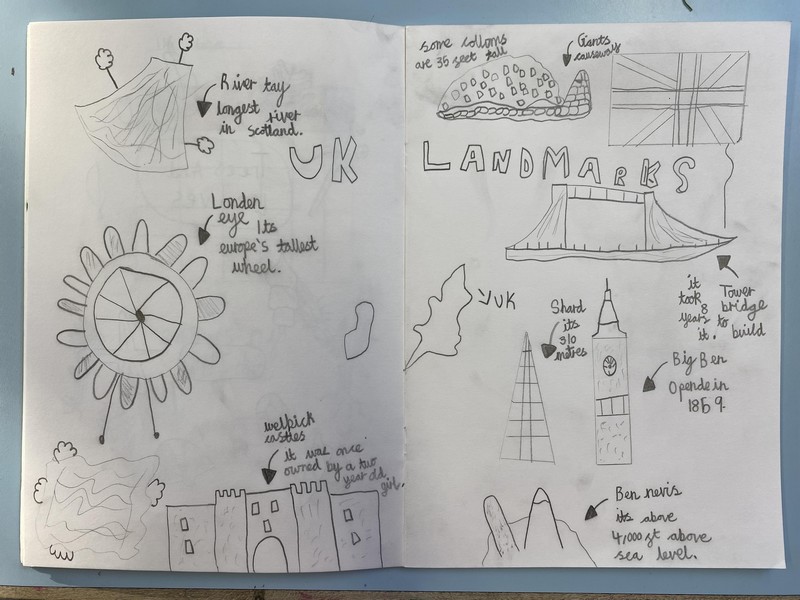 River tay
longest river
in Scotland.
UK
Londen
eye Its
europe's tallest
wheel.
welpick
castles
it was once
owned by a two
year old
girl.
some colloms
are 35 feet tall
Giants
causeway
LANDMARKS
UK
Shard
its
310
metres
it
took
8
years to
build
it.
Tower
bridge
Big Ben
Opende in
1859.
Ben nevis
its above
4,000 ft above
sea level.